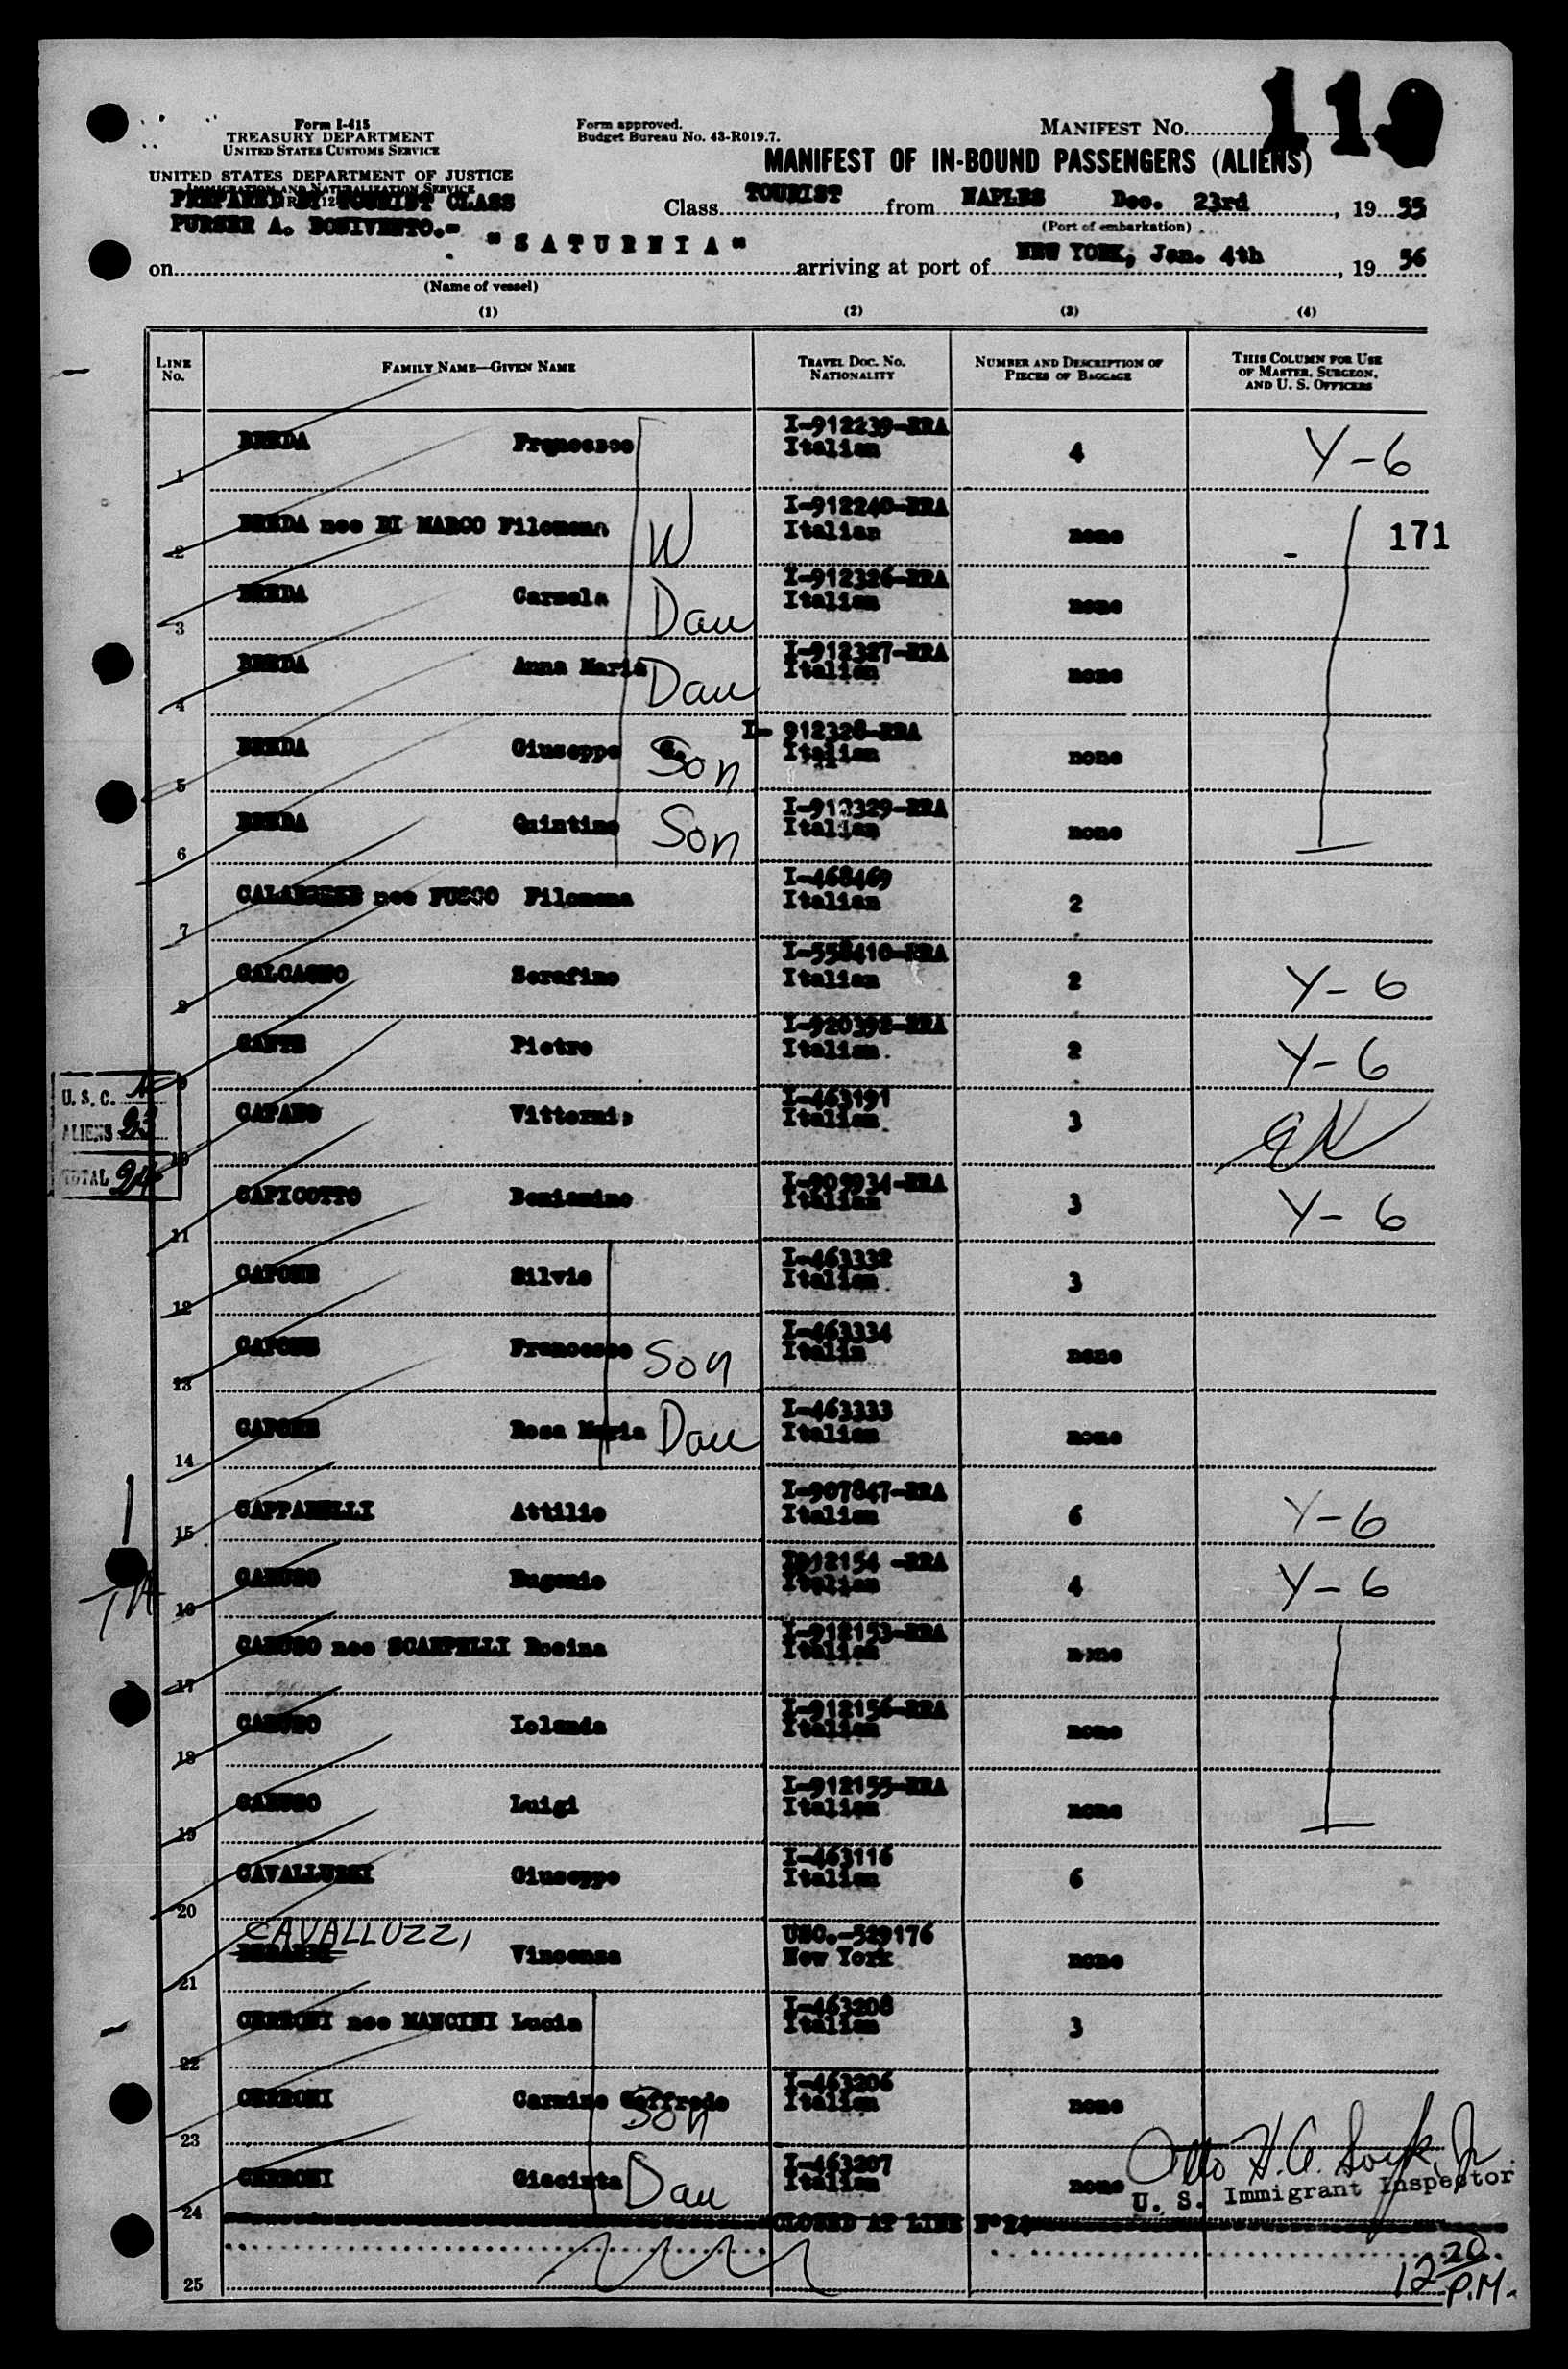 110
Form I-415
TREASURY DEPARTMENT
UNITED STATES CUSTOMS SERVICE
Form approved.
Budget Bureau No. 43-R019.7.
MANIFEST NO.
MANIFEST OF IN-BOUND PASSENGERS (ALIENS)
UNITED STATES DEPARTMENT OF JUSTICE
IMMIGRATION AND NATURALIZATION SERVICE
PREPARED BY TOURIST CLASS
PURSER A. BONIVENTO.-
Class TOURIST from NAPLES Dec. 23rd, 1955
(Port of embarkation)
on "SATURNIA" arriving at port of NEW YORK, Jan. 4th, 1956
(Name of vessel)
(1) (2) (3) (4)
LINE NO.
FAMILY NAME—GIVEN NAME
TRAVEL DOC. NO. NATIONALITY
NUMBER AND DESCRIPTION OF PIECES OF BAGGAGE
THIS COLUMN FOR USE OF MASTER, SURGEON, AND U. S. OFFICERS
1 BREDA Francesco I-912239-RRA Italian 4 Y-6
2 BREDA nee DI MARCO Filomena W I-912240-RRA Italian none 171
3 BREDA Carmela Dau I-912326-RRA Italian none
4 BREDA Anna Maria Dau I-912327-RRA Italian none
5 BREDA Giuseppe Son I- 912328-RRA Italian none
6 BREDA Quintino Son I-912329-RRA Italian none
7 CALABRESE nee FUSCO Filomena I-468469 Italian 2
8 CALCAGNO Serafino I-558410-RRA Italian 2 Y-6
9 CANTE Pietro I-920392-RRA Italian. 2 Y-6
U. S. C. 1
ALIENS 23
TOTAL 24
10 CAPANO Vittornio I-463191 Italian. 3
11 CAPICOTTO Beniamino I-909934-RRA Italian 3 Y-6
12 CAPONE Silvio I-463332 Italian. 3
13 CAPONE Francesco Son I-463334 Italin none
14 CAPONE Rosa Maria Dau I-463333 Italian none
15 CAPPARELLI Attilio I-907847-RRA Italian 6 Y-6
16 CARUSO Eugenio I912154 -RRA Italian 4 Y-6
17 CARUSO nee SCARPELLI Rosina I-912153-RRA Italian none
18 CARUSO Iolanda I-912156-RRA Italian none
19 CARUSO Luigi I-912155-RRA Italian none
20 CAVALLUZZI Giuseppe I-463116 Italian 6
CAVALLUZZI
21 Vincenza USC.-529176 New York none
22 CERRONI nee MANCINI Lucia I-463208 Italian 3
23 CERRONI Carmine Goffredo Son I-463206 Italian none
24 CERRONI Giacinta Dau I-463207 Italian none
U. S. Immigrant Inspector
CLOSED AT LINE N°24
25
12 20 P.M.